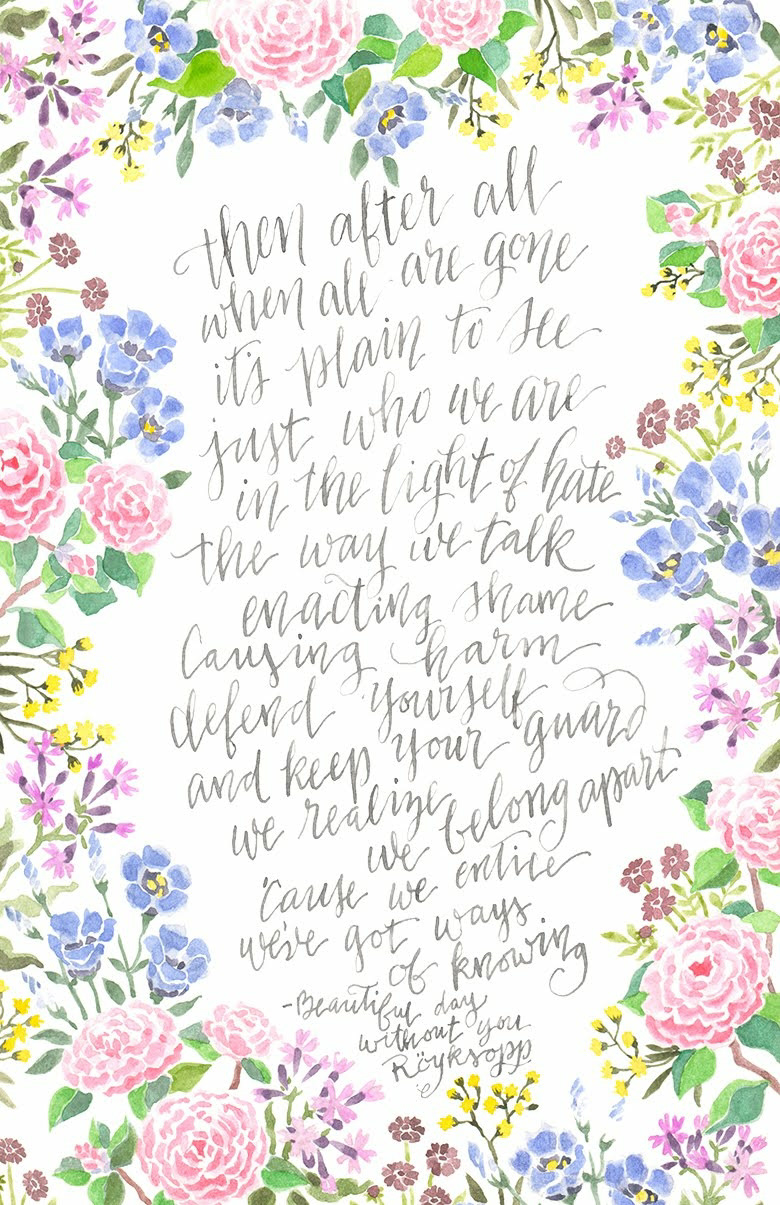 then after all
when all are gone
it's plain to see
just who we are
in the light of hate
the way we talk
enacting shame
Causing harm
defend yourself
and keep your guard
we realize
we belong apart
'Cause we entice
we've got ways
of knowing
-Beautiful day
without you
Röyksopp